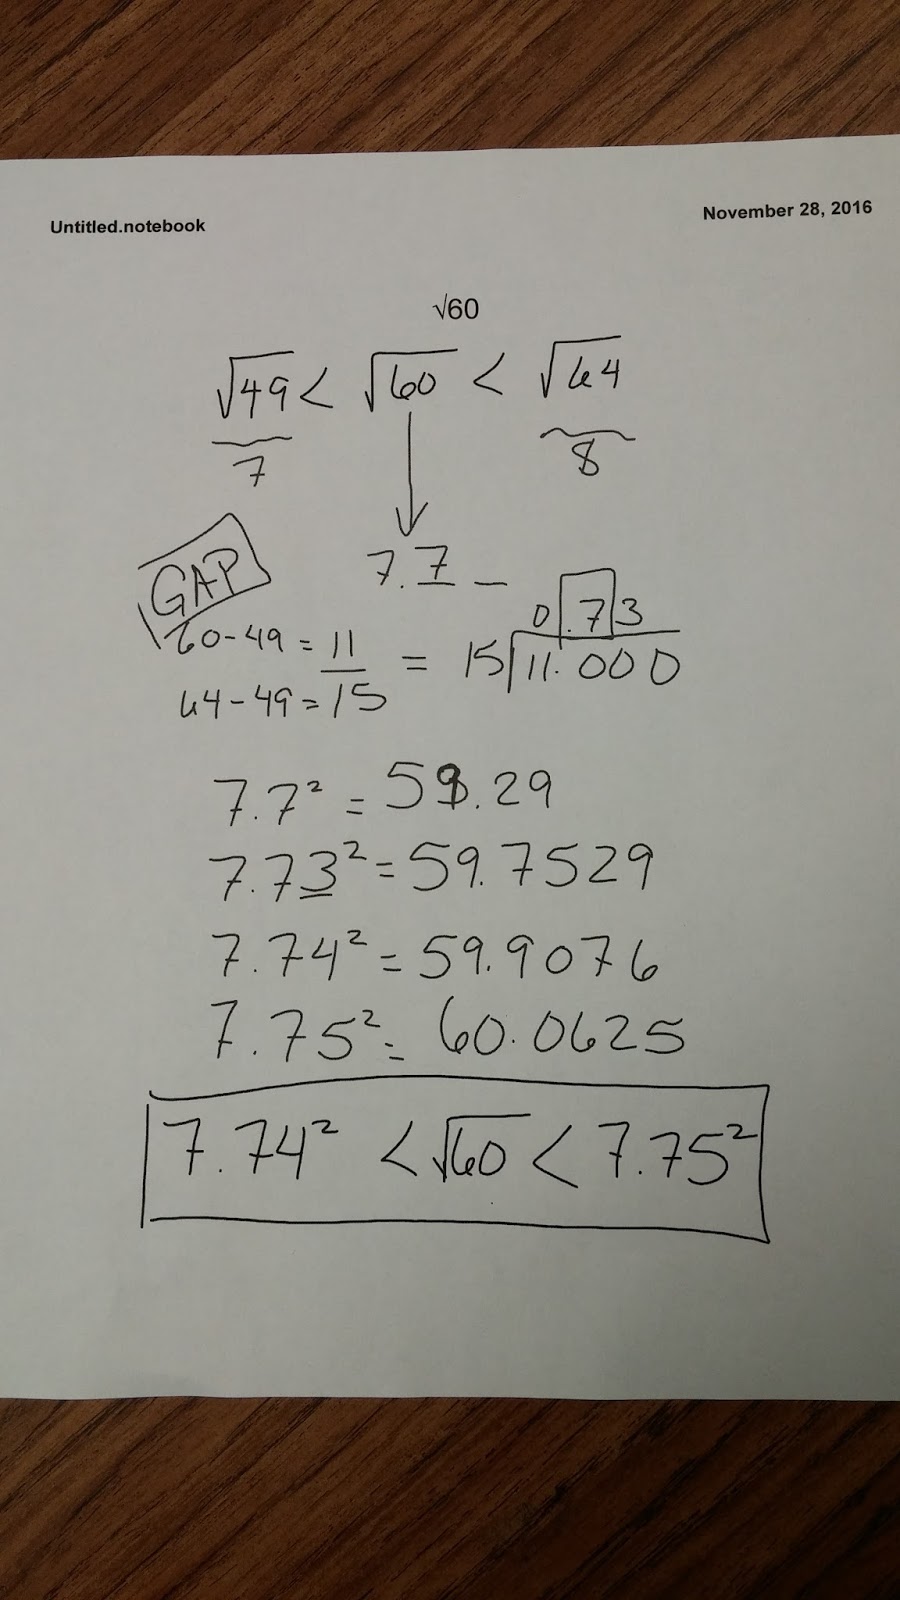 Untitled.notebook November 28, 2016
√60
√49 < √60 < √64
7 8
GAP
7.7 _
0.73
60-49 = 11 = 15 11.000
64-49 = 15
7.7² = 59.29
7.73² = 59.7529
7.74² = 59.9076
7.75² = 60.0625
7.74² < √60 < 7.75²